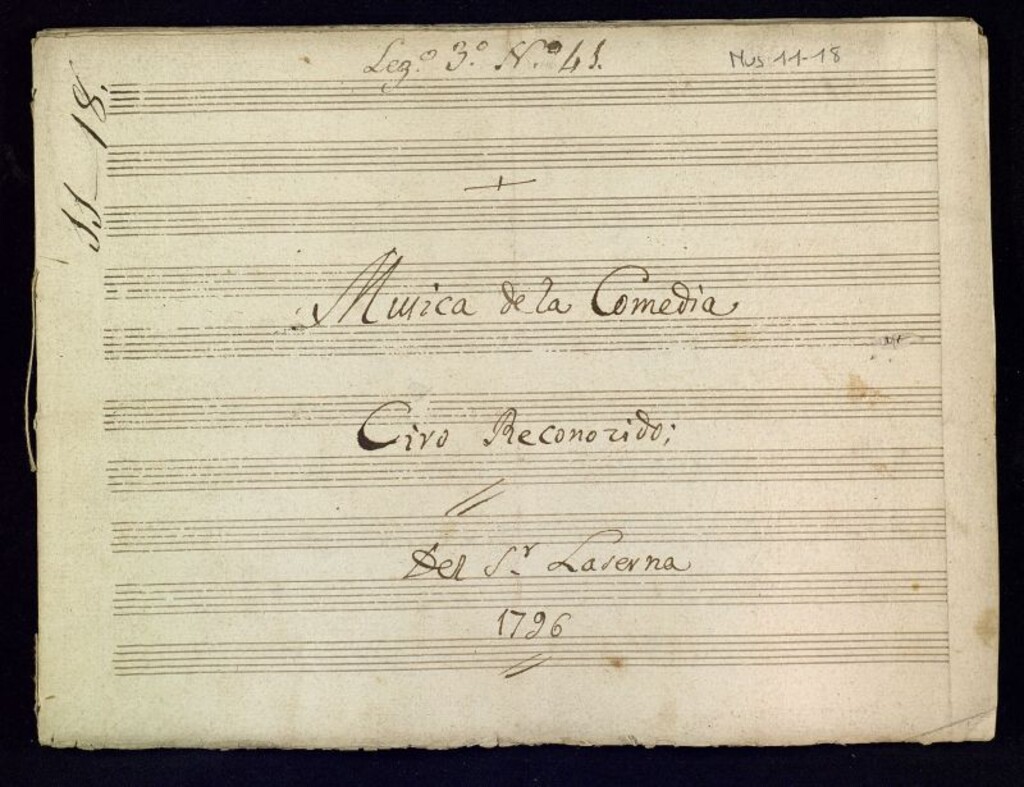 Leg.º 3.º N.º 41.
Mus 11-18
11-18.
Musica de la Comedia
Ciro Reconozido;
Del S.r Laserna
1796